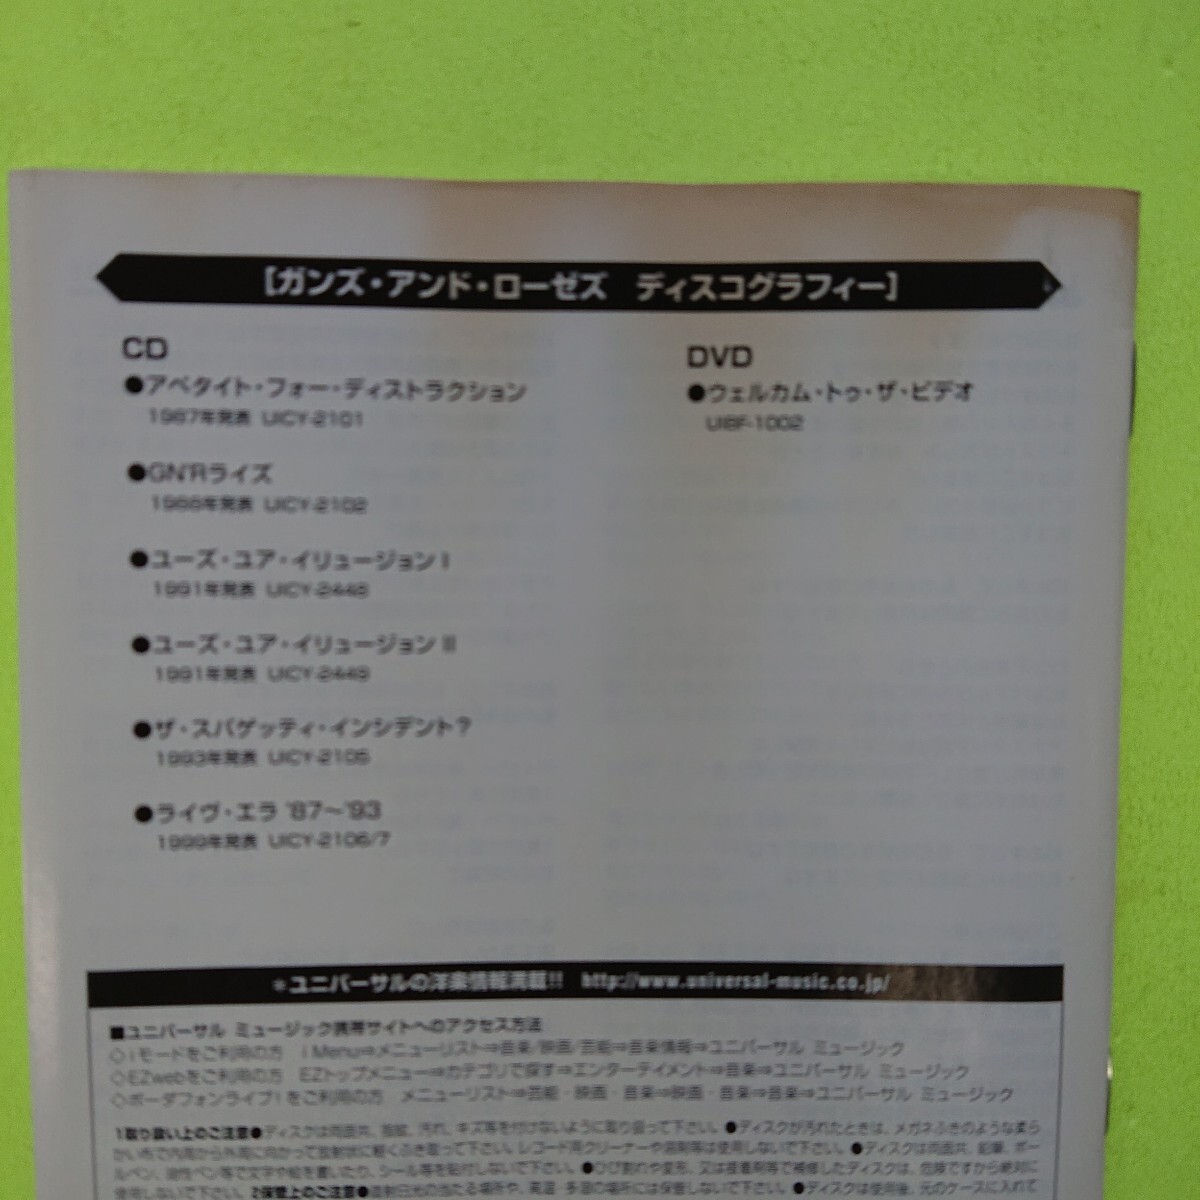 [ガンズ・アンド・ローゼズ　ディスコグラフィー]
CD
●アペタイト・フォー・ディストラクション
1987年発表 UICY-2101
●GN'Rライズ
1988年発表 UICY-2102
●ユーズ・ユア・イリュージョンⅠ
1991年発表 UICY-2448
●ユーズ・ユア・イリュージョンⅡ
1991年発表 UICY-2449
●ザ・スパゲッティ・インシデント?
1993年発表 UICY-2105
●ライヴ・エラ '87〜'93
1999年発表 UICY-2106/7
DVD
●ウェルカム・トゥ・ザ・ビデオ
UIBF-1002
＊ユニバーサルの洋楽情報満載!!　http://www.universal-music.co.jp/
■ユニバーサル ミュージック携帯サイトへのアクセス方法
◇iモードをご利用の方　i Menu⇒メニューリスト⇒音楽/映画/芸能⇒音楽情報⇒ユニバーサル ミュージック
◇EZwebをご利用の方　EZトップメニュー⇒カテゴリで探す⇒エンターテイメント⇒音楽⇒ユニバーサル ミュージック
◇ボーダフォンライブ!をご利用の方　メニューリスト⇒芸能・映画・音楽⇒映画・音楽⇒音楽⇒ユニバーサル ミュージック
1取り扱い上のご注意●ディスクは両面共、指紋、汚れ、キズ等を付けないように取り扱って下さい。●ディスクが汚れたときは、メガネふきのような柔ら
かい布で内周から外周に向かって放射状に軽くふき取って下さい。レコード用クリーナーや溶剤等は使用しないで下さい。●ディスクは両面共、鉛筆、ボー
ルペン、油性ペン等で文字や絵を書いたり、シール等を貼付しないで下さい。●ひび割れや変形、又は接着剤等で補修したディスクは、危険ですから絶対に
使用しないで下さい。2保管上のご注意●直射日光の当たる場所や、高温・多湿の場所には保管しないで下さい。●ディスクは使用後、元のケースに入れて